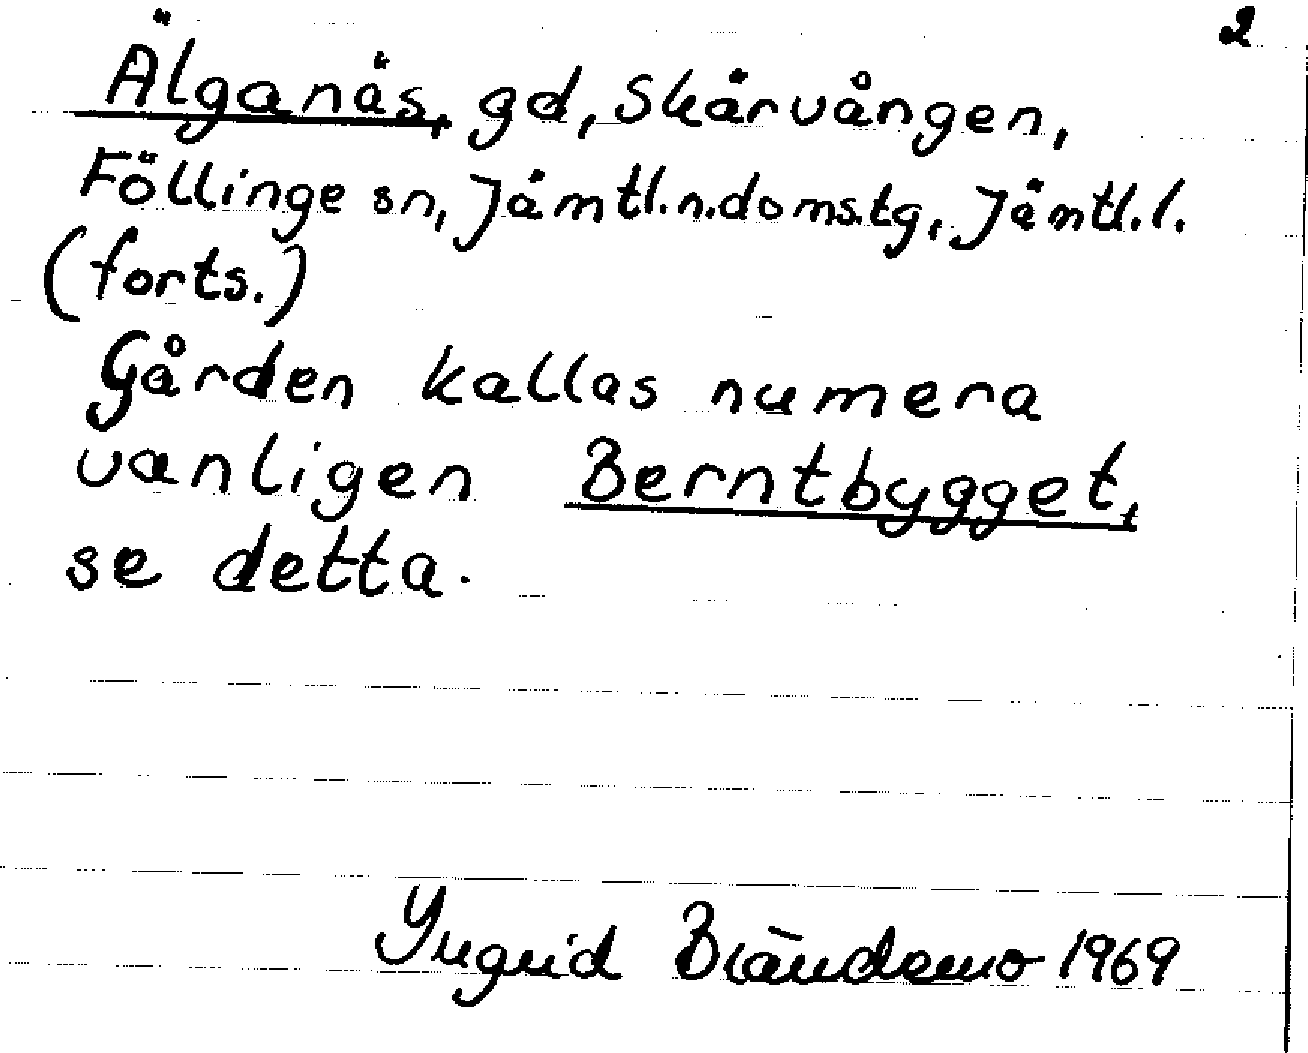 2
Älganäs, gd, Skärvången,
Föllinge sn, Jämtl.n.doms.tg, Jämtl.l.
(forts.)
Gården kallas numera
vanligen Berntbygget,
se detta.
Ingrid Brändemo 1969